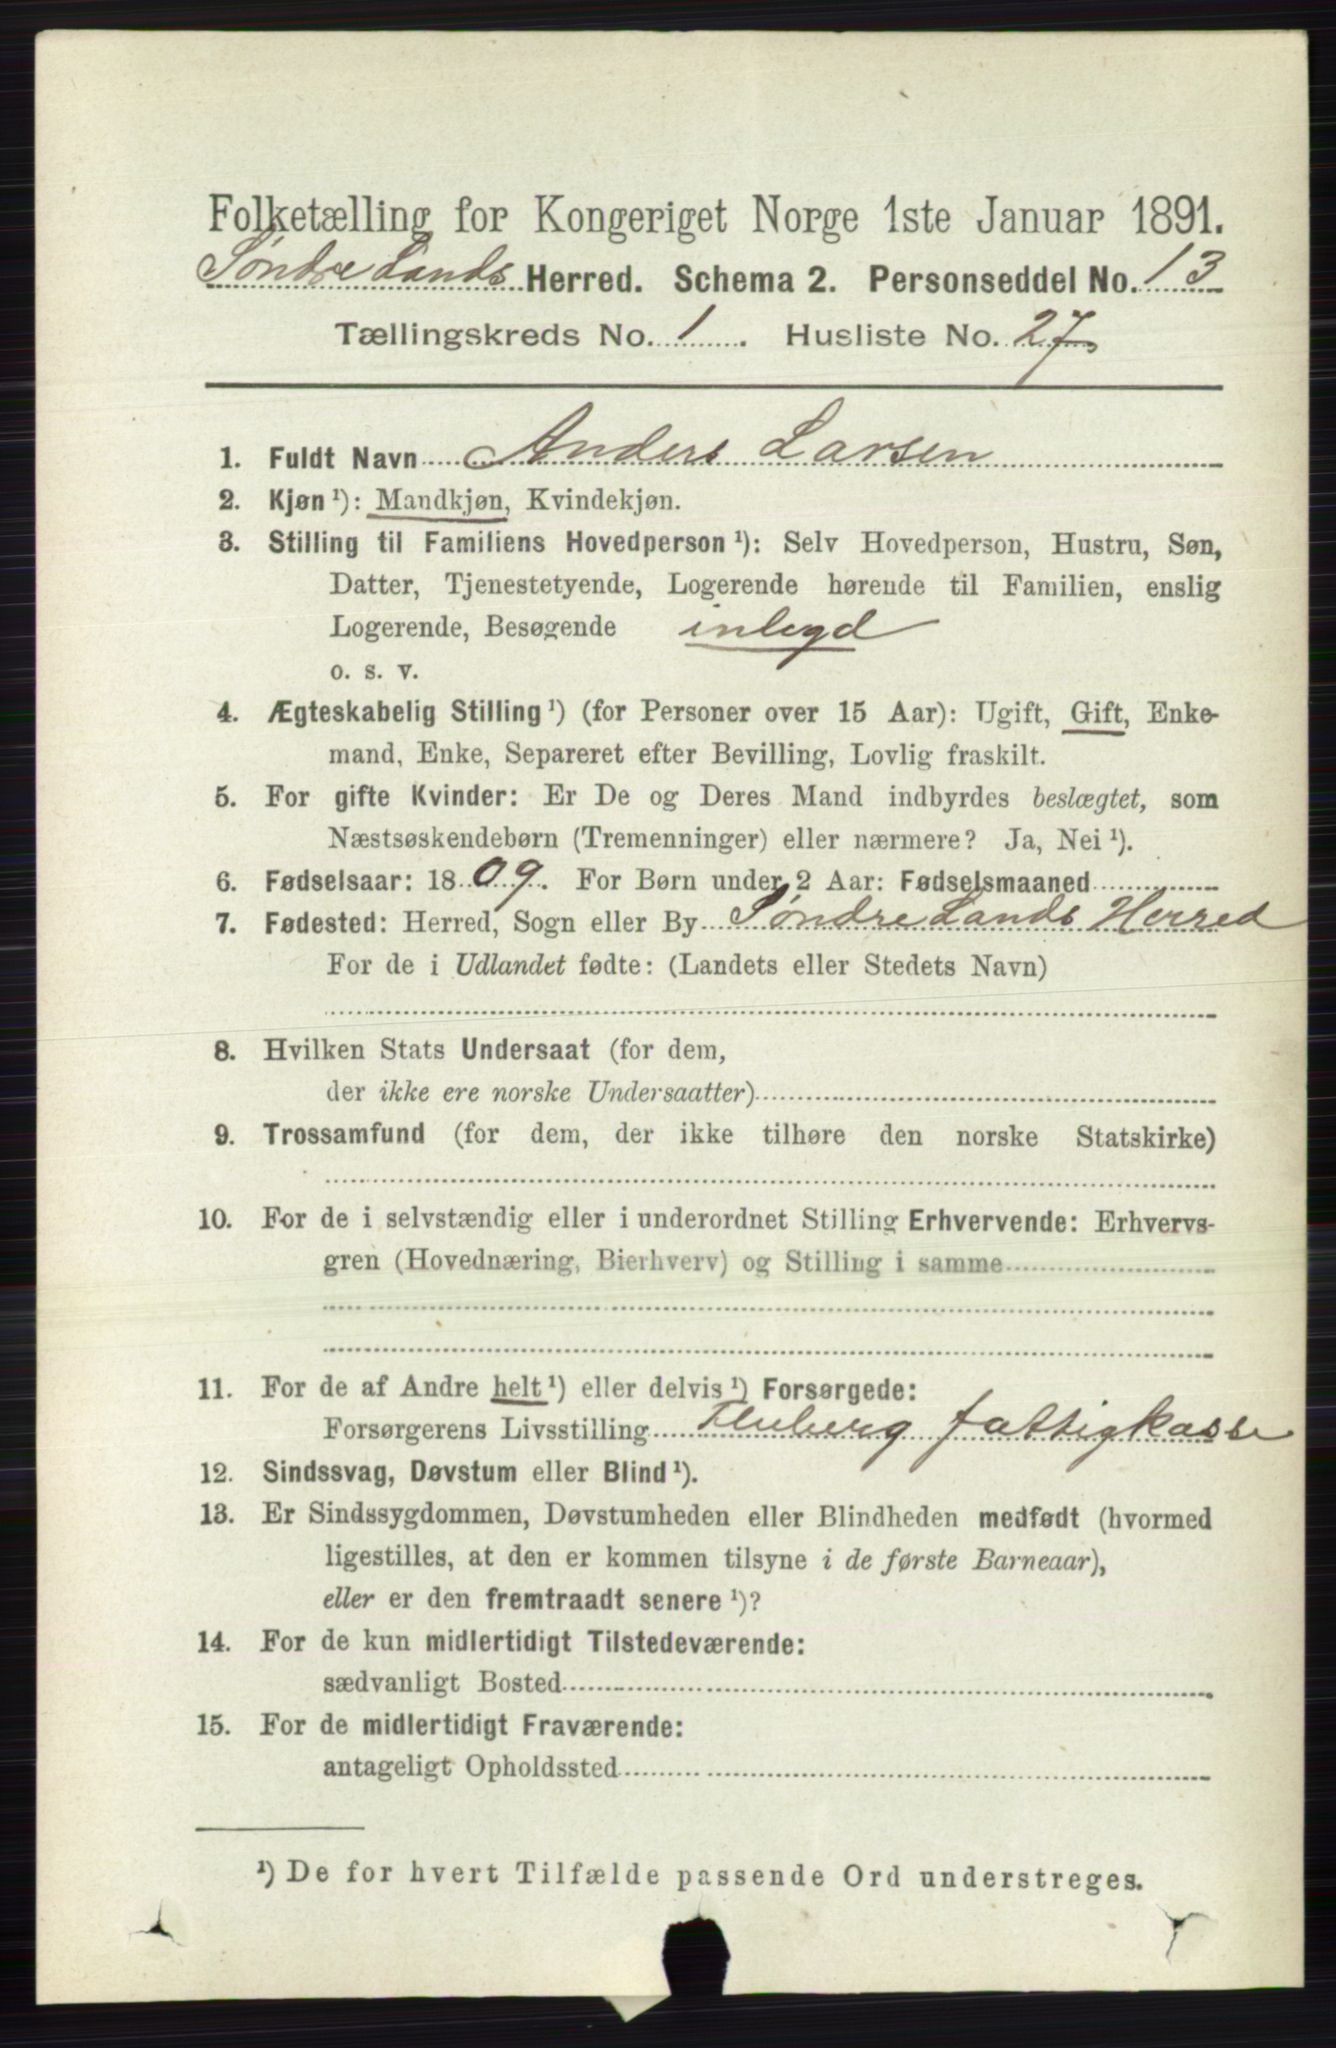 Folketælling for Kongeriget Norge 1ste Januar 1891.
Søndre Lands Herred. Schema 2. Personseddel No. 13
Tællingskreds No. 1. Husliste No. 27
1. Fuldt Navn Anders Larsen
2. Kjøn ¹): Mandkjøn, Kvindekjøn.
3. Stilling til Familiens Hovedperson ¹): Selv Hovedperson, Hustru, Søn,
Datter, Tjenestetyende, Logerende hørende til Familien, enslig
Logerende, Besøgende inlegd
o. s. v.
4. Ægteskabelig Stilling ¹) (for Personer over 15 Aar): Ugift, Gift, Enke-
mand, Enke, Separeret efter Bevilling, Lovlig fraskilt.
5. For gifte Kvinder: Er De og Deres Mand indbyrdes beslægtet, som
Næstsøskendebørn (Tremenninger) eller nærmere? Ja, Nei ¹).
6. Fødselsaar: 1809. For Børn under 2 Aar: Fødselsmaaned
7. Fødested: Herred, Sogn eller By Søndre Lands Herred
For de i Udlandet fødte: (Landets eller Stedets Navn)
8. Hvilken Stats Undersaat (for dem,
der ikke ere norske Undersaatter)
9. Trossamfund (for dem, der ikke tilhøre den norske Statskirke)
10. For de i selvstændig eller i underordnet Stilling Erhvervende: Erhvervs-
gren (Hovednæring, Bierhverv) og Stilling i samme
11. For de af Andre helt ¹) eller delvis ¹) Forsørgede:
Forsørgerens Livsstilling Fluberg fattigkasse
12. Sindssvag, Døvstum eller Blind ¹).
13. Er Sindssygdommen, Døvstumheden eller Blindheden medfødt (hvormed
ligestilles, at den er kommen tilsyne i de første Barneaar),
eller er den fremtraadt senere ¹)?
14. For de kun midlertidigt Tilstedeværende:
sædvanligt Bosted
15. For de midlertidigt Fraværende:
antageligt Opholdssted
¹) De for hvert Tilfælde passende Ord understreges.